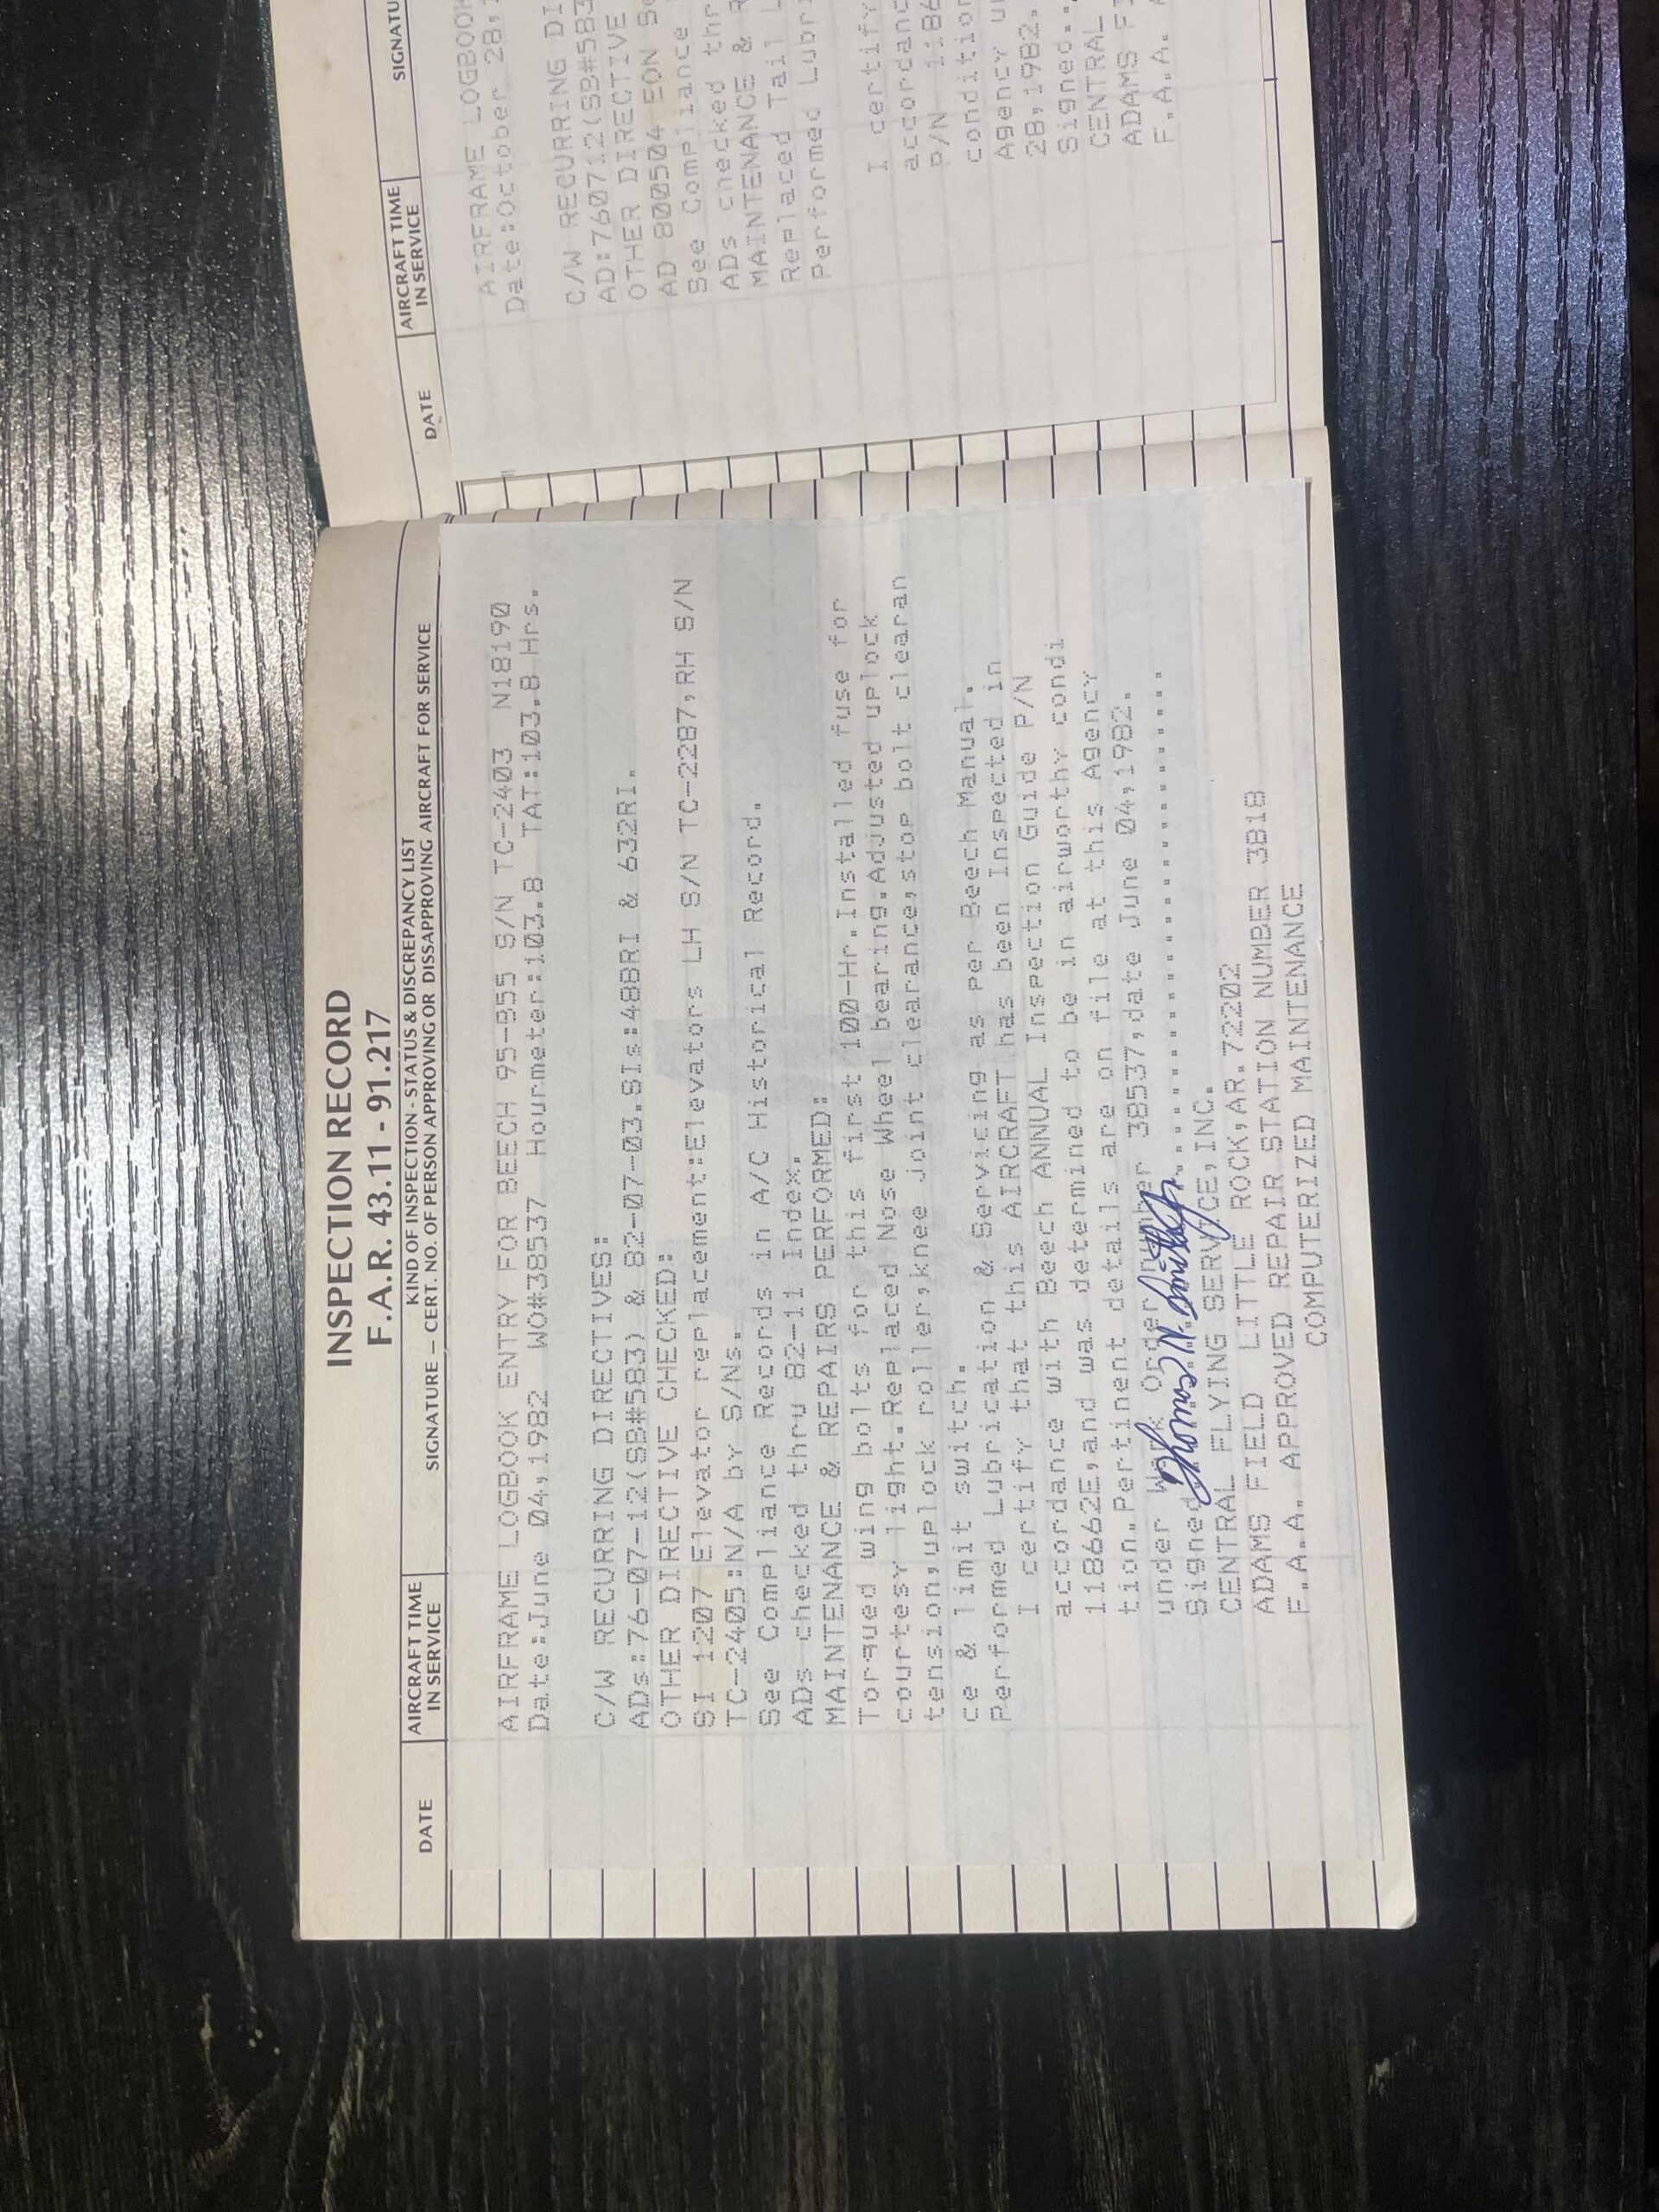 INSPECTION RECORD
F.A.R. 43.11 - 91.217
DATE
AIRCRAFT TIME IN SERVICE
KIND OF INSPECTION - STATUS & DISCREPANCY LIST
SIGNATURE — CERT. NO. OF PERSON APPROVING OR DISAPPROVING AIRCRAFT FOR SERVICE
AIRFRAME LOGBOOK ENTRY FOR BEECH 95-B55 S/N TC-2403 N18190
Date:June 04,1982 WO#38537 Hourmeter:103.8 TAT:103.8 Hrs.
C/W RECURRING DIRECTIVES:
ADs:76-07-12(SB#583) & 82-07-03.SIs:488RI & 632RI.
OTHER DIRECTIVE CHECKED:
SI 1207 Elevator replacement:Elevators LH S/N TC-2287,RH S/N
TC-2405:N/A by S/Ns.
See Compliance Records in A/C Historical Record.
ADs checked thru 82-11 Index.
MAINTENANCE & REPAIRS PERFORMED:
Torqued wing bolts for this first 100-Hr.Installed fuse for
courtesy light.Replaced Nose Wheel bearing.Adjusted uplock
tension,uplock roller,knee joint clearance,stop bolt clearan
ce & limit switch.
Performed Lubrication & Servicing as per Beech Manual.
I certify that this AIRCRAFT has been Inspected in
accordance with Beech ANNUAL Inspection Guide P/N
118662E,and was determined to be in airworthy condi
tion.Pertinent details are on file at this Agency
under Work Order number 38537,date June 04,1982.
Signed
CENTRAL FLYING SERVICE,INC.
ADAMS FIELD LITTLE ROCK,AR.72202
F.A.A. APPROVED REPAIR STATION NUMBER 3818
COMPUTERIZED MAINTENANCE
DATE
AIRCRAFT TIME IN SERVICE
SIGNATU
AIRFRAME LOGBOOK
Date:October 28,
C/W RECURRING DI
AD:760712(SB#583
OTHER DIRECTIVE
AD 800504 EON Se
See Compliance
ADs checked thr
MAINTENANCE & R
Replaced Tail L
Performed Lubri
I certify
accordanc
P/N 1186
condition
Agency un
28,1982.
Signed..
CENTRAL
ADAMS FI
F.A.A. A